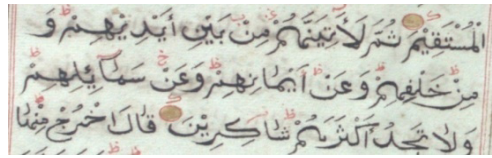 الْمُسْتَقِيْمَ ثُمَّ لَأٰتِيَنَّهُمْ مِنْ بَيْنِ أَيْدِيْهِمْ وَ
مِنْ خَلْفِهِمْ وَعَنْ اَيْمَانِهِمْ وَعَنْ شَمَآئِلِهِمْ
وَلَا تَجِدُ أَكْثَرَهُمْ شَاكِرِيْنَ قَالَ اخْرُجْ مِنْهَا